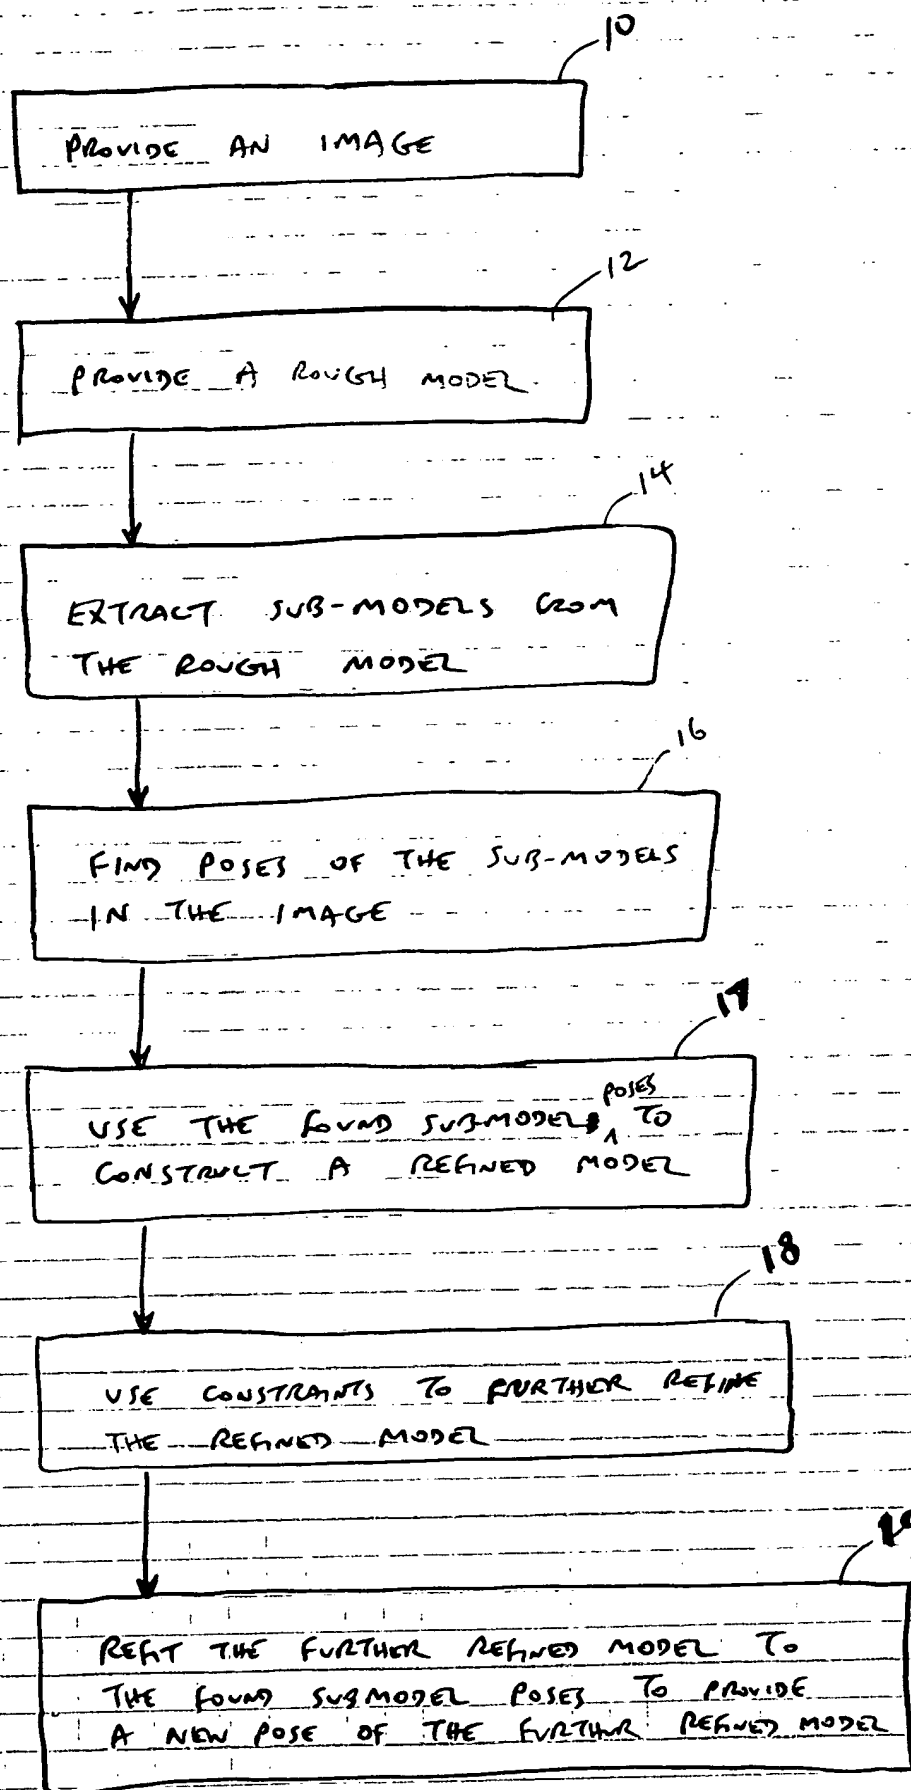 10
PROVIDE AN IMAGE
12
PROVIDE A ROUGH MODEL
14
EXTRACT SUB-MODELS FROM
THE ROUGH MODEL
16
FIND POSES OF THE SUB-MODELS
IN THE IMAGE
17
POSES
USE THE FOUND SUBMODEL ^ TO
CONSTRUCT A REFINED MODEL
18
USE CONSTRAINTS TO FURTHER REFINE
THE REFINED MODEL
REFIT THE FURTHER REFINED MODEL TO
THE FOUND SUBMODEL POSES TO PROVIDE
A NEW POSE OF THE FURTHUR REFINED MODEL